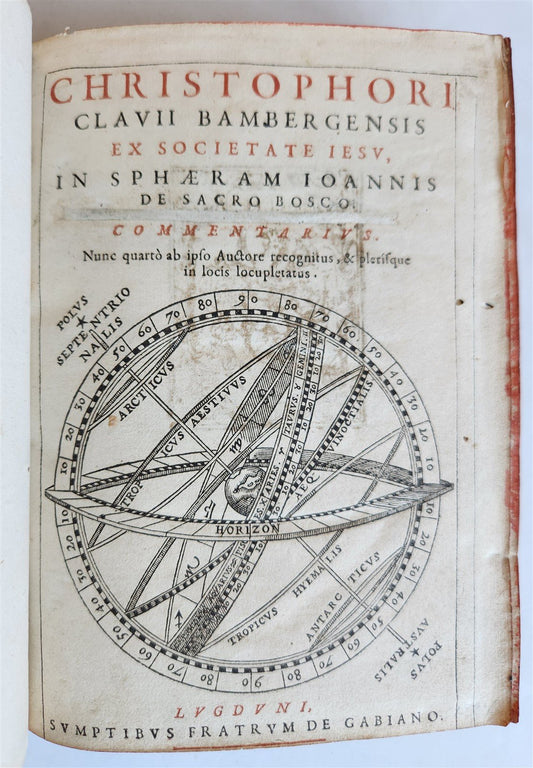 CHRISTOPHORI
CLAVII BAMBERGENSIS
EX SOCIETATE IESV,
IN SPHÆRAM IOANNIS
DE SACRO BOSCO.
COMMENTARIVS.
Nunc quartò ab ipso Auctore recognitus, & plerisque
in locis locupletatus.
POLVS
SEPTENTRIO
NALIS
90
80 80
70 70
60 60
50 50
40 40
30 30
20 20
10 10
ARCTICVS
TROPICVS AESTIVVS
GEMINI
TAVRVS
ARIES
AEQVINOCTIALIS
HORIZON
TROPICVS HYEMALIS
ANTARCTICVS
10 10
20 20
30 30
40 40
50 50
60 60
70 70
80 80
90
POLVS
AVSTRALIS
LVGDVNI,
SVMPTIBVS FRATRVM DE GABIANO.